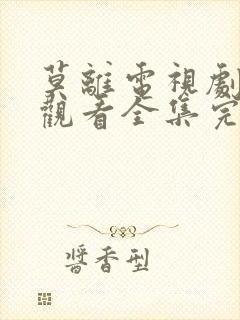 莫離電視劇
觀看全集完
醬香型